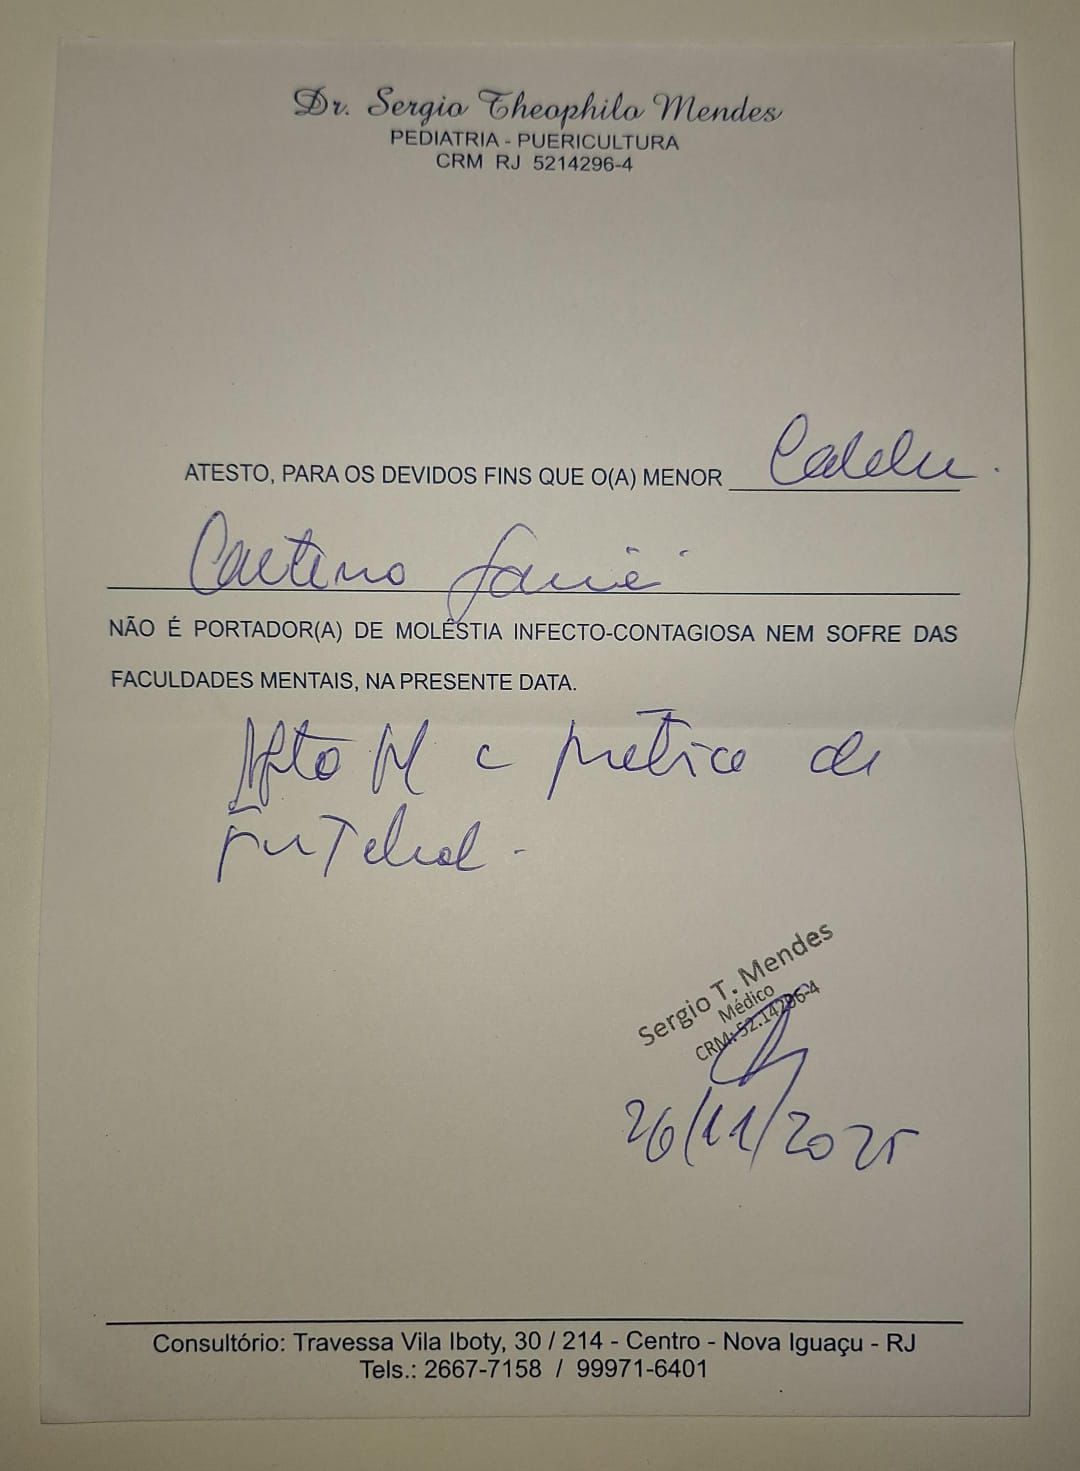 Dr. Sergio Theophilo Mendes
PEDIATRIA - PUERICULTURA
CRM RJ 5214296-4
ATESTO, PARA OS DEVIDOS FINS QUE O(A) MENOR
Caetano
NÃO É PORTADOR(A) DE MOLÉSTIA INFECTO-CONTAGIOSA NEM SOFRE DAS
FACULDADES MENTAIS, NA PRESENTE DATA.
Apto p/ a prática de
Futebol.
Sergio T. Mendes
Médico
CRM: 52.14296-4
26/11/2025
Consultório: Travessa Vila Iboty, 30 / 214 - Centro - Nova Iguaçu - RJ
Tels.: 2667-7158 / 99971-6401